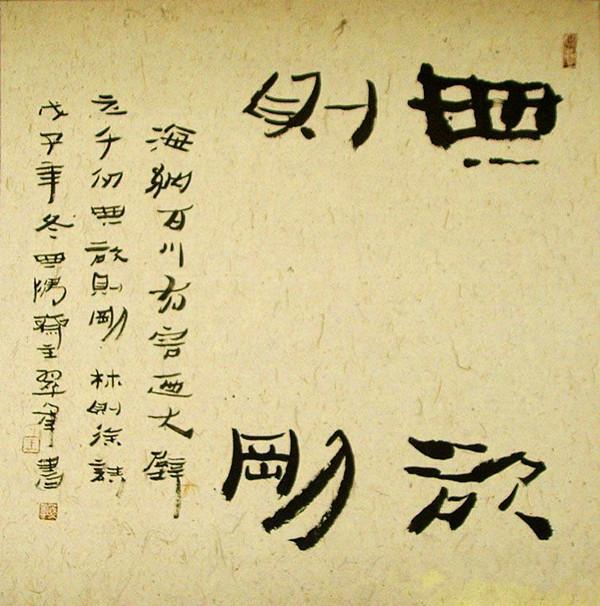 無欲
則剛
海納百川有容迺大壁
立千仞無欲則剛 林則徐
戊子年冬四隅齋主翠峯書